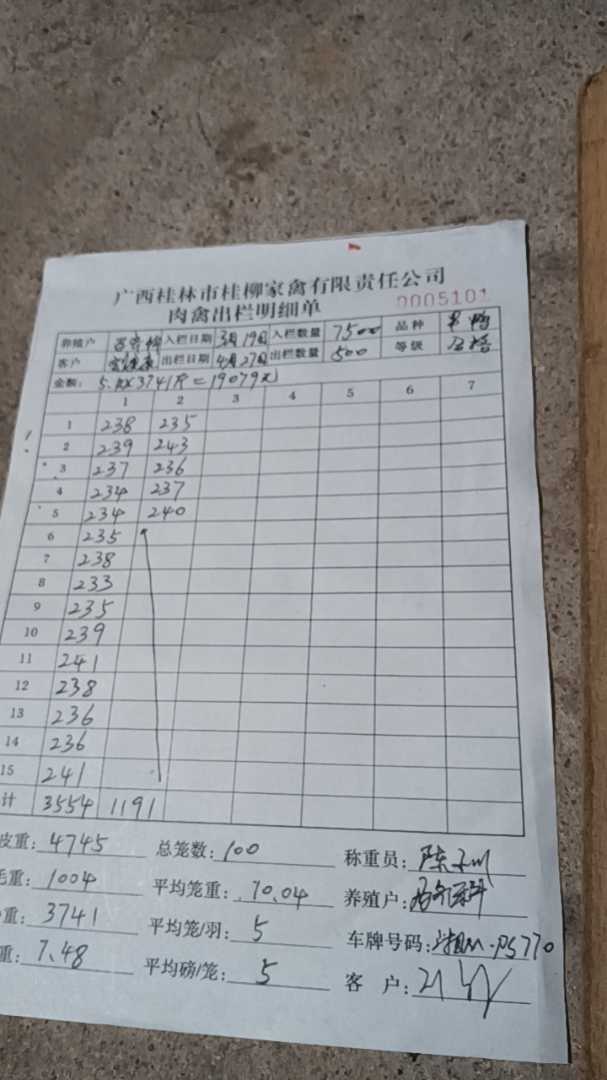 广西桂林市桂柳家禽有限责任公司
肉禽出栏明细单 0005101
养殖户 入栏日期 3月19日 入栏数量 7500 品种
客户 出栏日期 4月27日 出栏数量 500 等级 合格
金额: 5.1×3741斤=19079元
1 2 3 4 5 6 7
1 238 235
2 239 243
3 237 236
4 234 237
5 234 240
6 235
7 238
8 233
9 235
10 239
11 241
12 238
13 236
14 236
15 241
计 3554 1191
皮重: 4745 总笼数: 100 称重员:
毛重: 1004 平均笼重: 10.04 养殖户:
重: 3741 平均笼/羽: 5 车牌号码:
重: 7.48 平均磅/笼: 5 客 户: